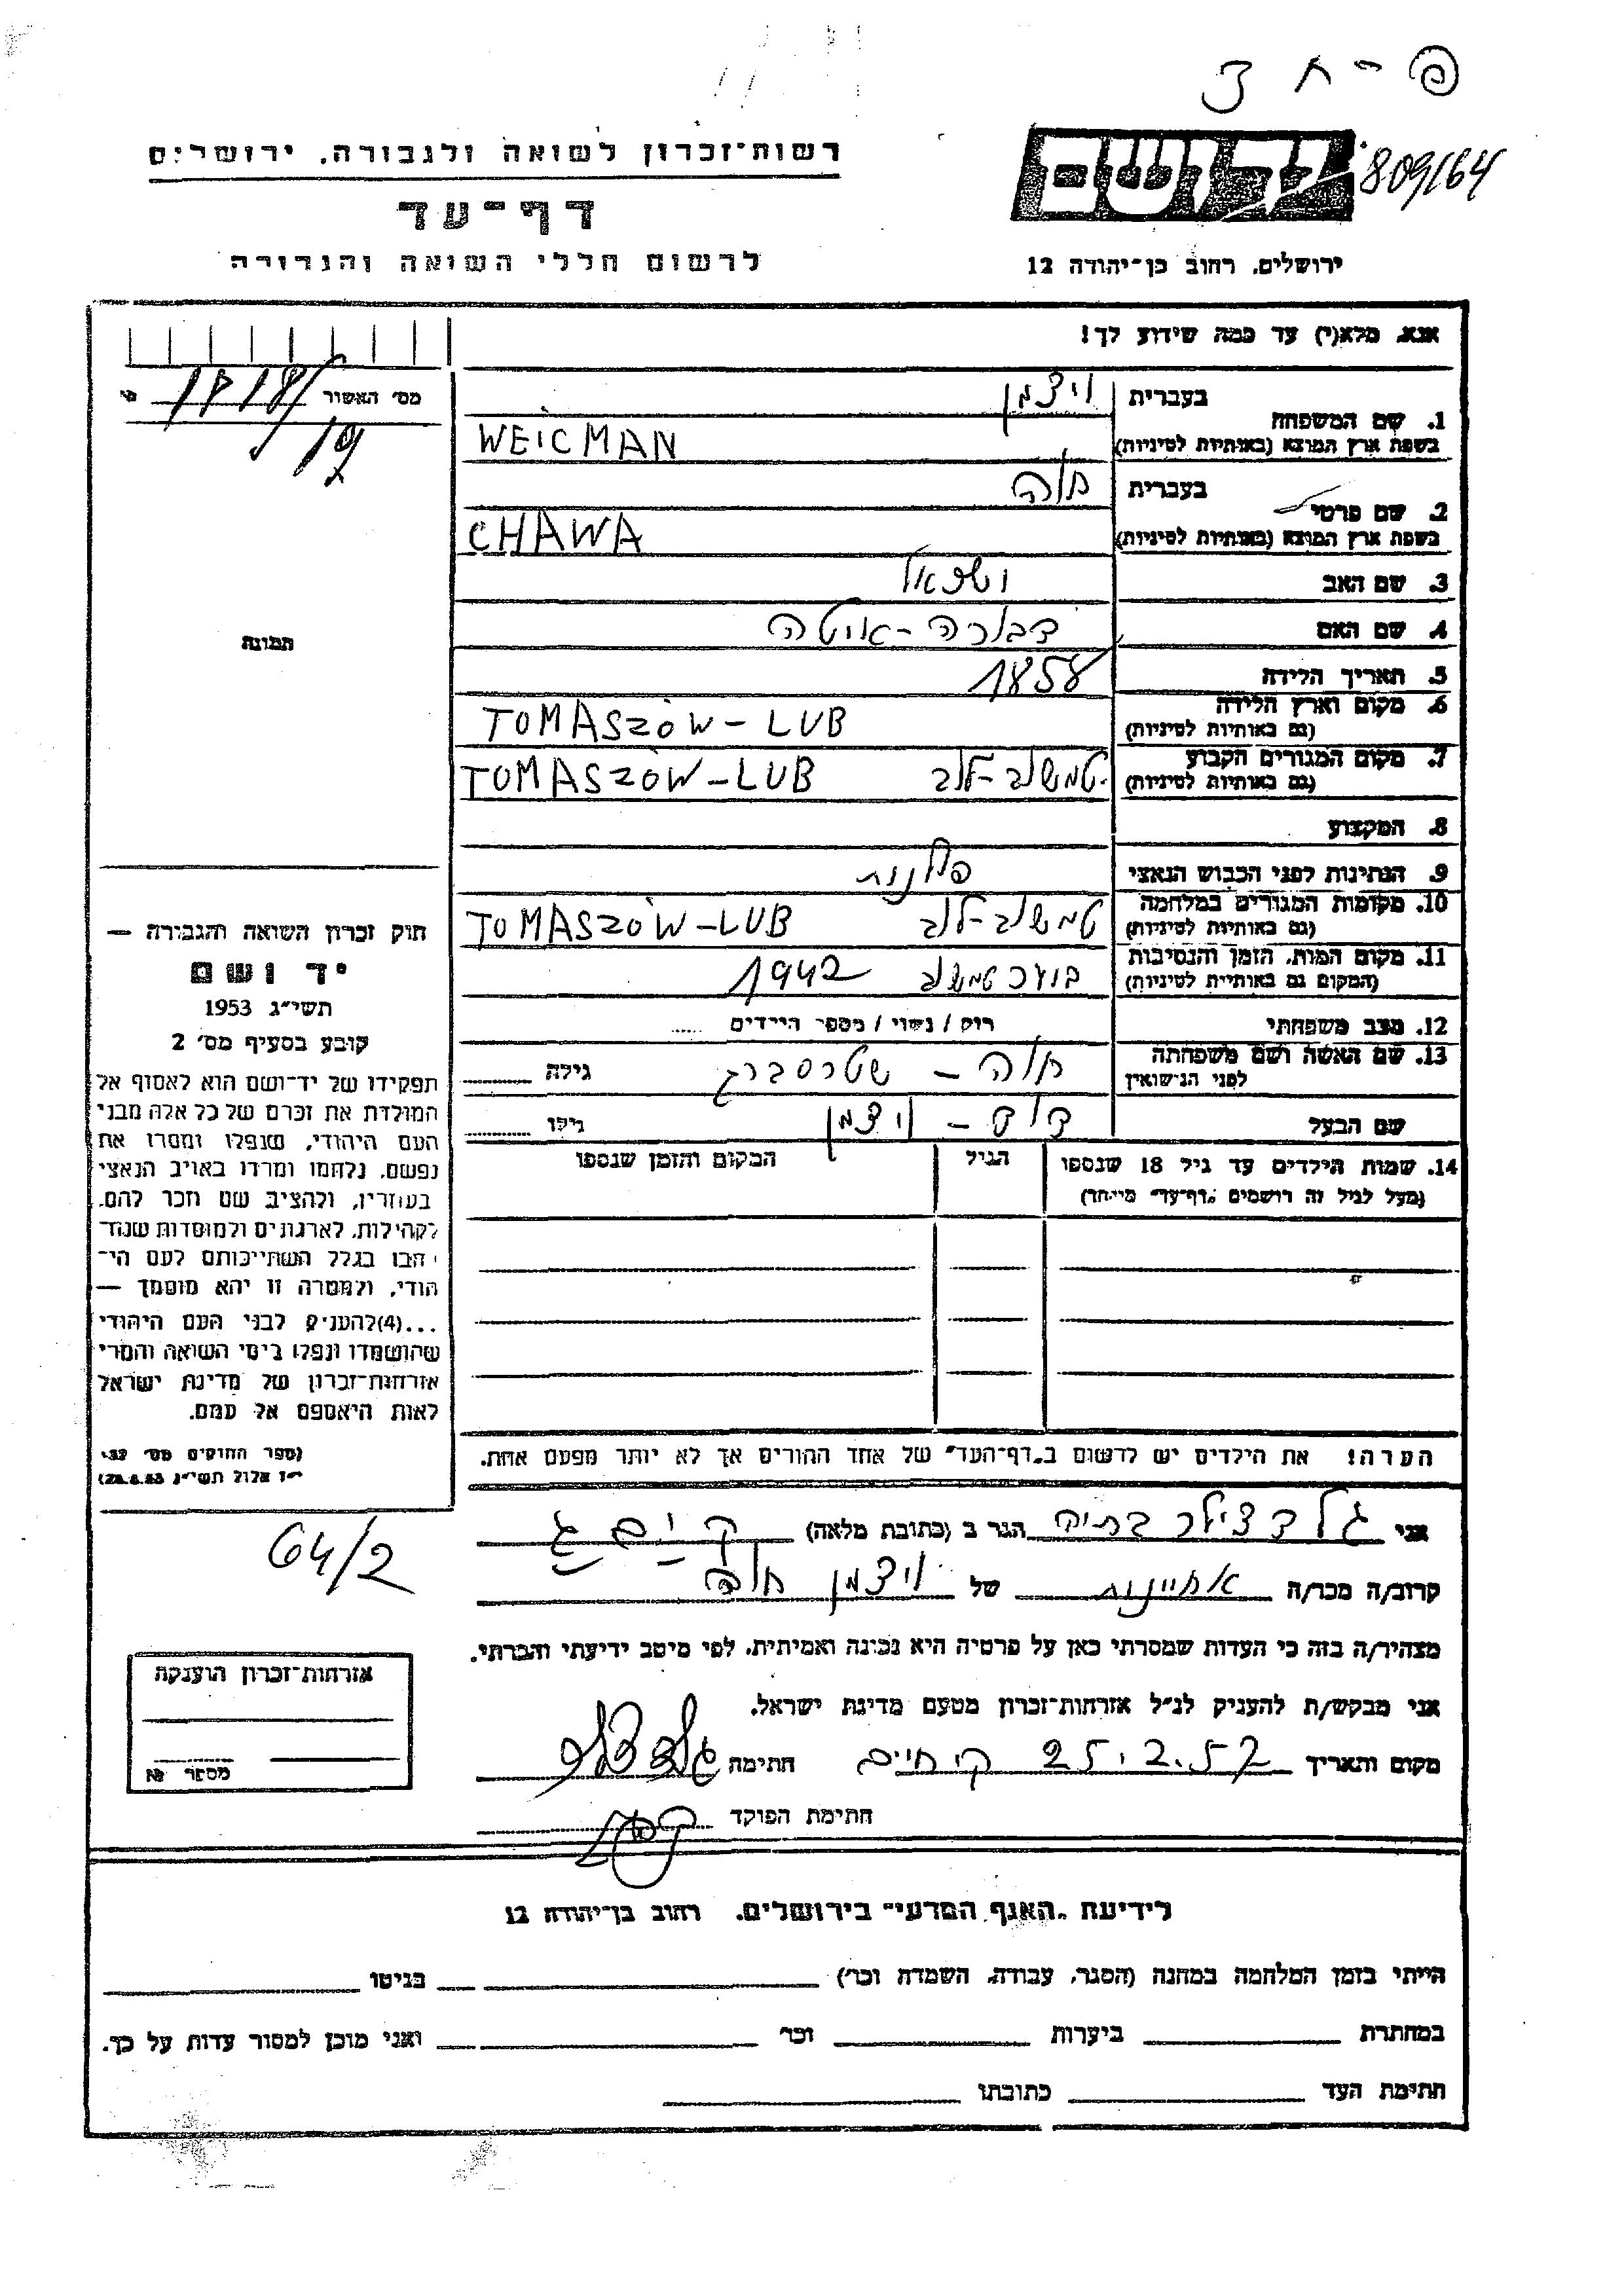 רשות־זכרון לשואה ולגבורה, ירושלים
דף־עד
לרשום חללי השואה והגבורה
יד ושם
809/64
ירושלים, רחוב בן־יהודה 12
אנא, מלא(י) עד כמה שידוע לך!
מס׳ האשור
1. שם המשפחה
בעברית ויצמן
בשפת ארץ המוצא (באותיות לטיניות) WEICMAN
2. שם פרטי
בעברית חוה
בשפת ארץ המוצא (באותיות לטיניות) CHAWA
3. שם האב
4. שם האם דבורה-איטה
5. תאריך הלידה 1858
6. מקום וארץ הלידה
(גם באותיות לטיניות) TOMASZÓW-LUB
7. מקום המגורים הקבוע
(גם באותיות לטיניות) טמשוב-לוב TOMASZÓW-LUB
8. המקצוע
9. הנתינות לפני הכבוש הנאצי פולנית
10. מקומות המגורים במלחמה
(גם באותיות לטיניות) טמשוב-לוב TOMASZÓW-LUB
11. מקום המות, הזמן והנסיבות
(המקום גם באותיות לטיניות) טמשוב 1942
12. מצב משפחתי רוק / נשוי / מספר הילדים
13. שם האשה ושם משפחתה
לפני הנישואין חוה - שטרסברג גילה
שם הבעל דוד - ויצמן גילו
14. שמות הילדים עד גיל 18 שנספו הגיל המקום והזמן שנספו
(מעל לגיל זה רושמים „דף־עד״ מיוחד)
הערה! את הילדים יש לרשום ב„דף־העד״ של אחד ההורים אך לא יותר מפעם אחת.
תמונה
חוק זכרון השואה והגבורה —
יד ושם
תשי״ג 1953
קובע בסעיף מס׳ 2
תפקידו של יד־ושם הוא לאסוף אל
המולדת את זכרם של כל אלה מבני
העם היהודי, שנפלו ומסרו את
נפשם, נלחמו ומרדו באויב הנאצי
בעוזריו, ולהציב שם וזכר להם,
לקהילות, לארגונים ולמוסדות שנח־
רבו בגלל השתייכותם לעם הי־
הודי, ולמטרה זו יהא מוסמך —
...(4)להעניק לבני העם היהודי
שהושמדו ונפלו בימי השואה והמרי
אזרחות־זכרון של מדינת ישראל
לאות היאספם אל עמם.
(ספר החוקים מס׳ 132,
י״ז אלול תשי״ג 28.8.53)
64/2
אני גולדצילר בתיה הגר ב (כתובת מלאה)
קרוב/ה מכר/ה אחיינית של ויצמן חוה
מצהיר/ה בזה כי העדות שמסרתי כאן על פרטיה היא נכונה ואמיתית, לפי מיטב ידיעתי והכרתי.
אני מבקש/ת להעניק לנ״ל אזרחות־זכרון מטעם מדינת ישראל.
מקום ותאריך ק׳ חיים 25.2.57 חתימה
חתימת הפוקד
אזרחות־זכרון הוענקה
מספר №
לידיעת „האגף המדעי״ בירושלים, רחוב בן־יהודה 12
הייתי בזמן המלחמה במחנה (הסגר, עבודה, השמדה וכו׳) בגיטו
במחתרת ביערות וכו׳ ואני מוכן למסור עדות על כך.
חתימת העד כתובתו